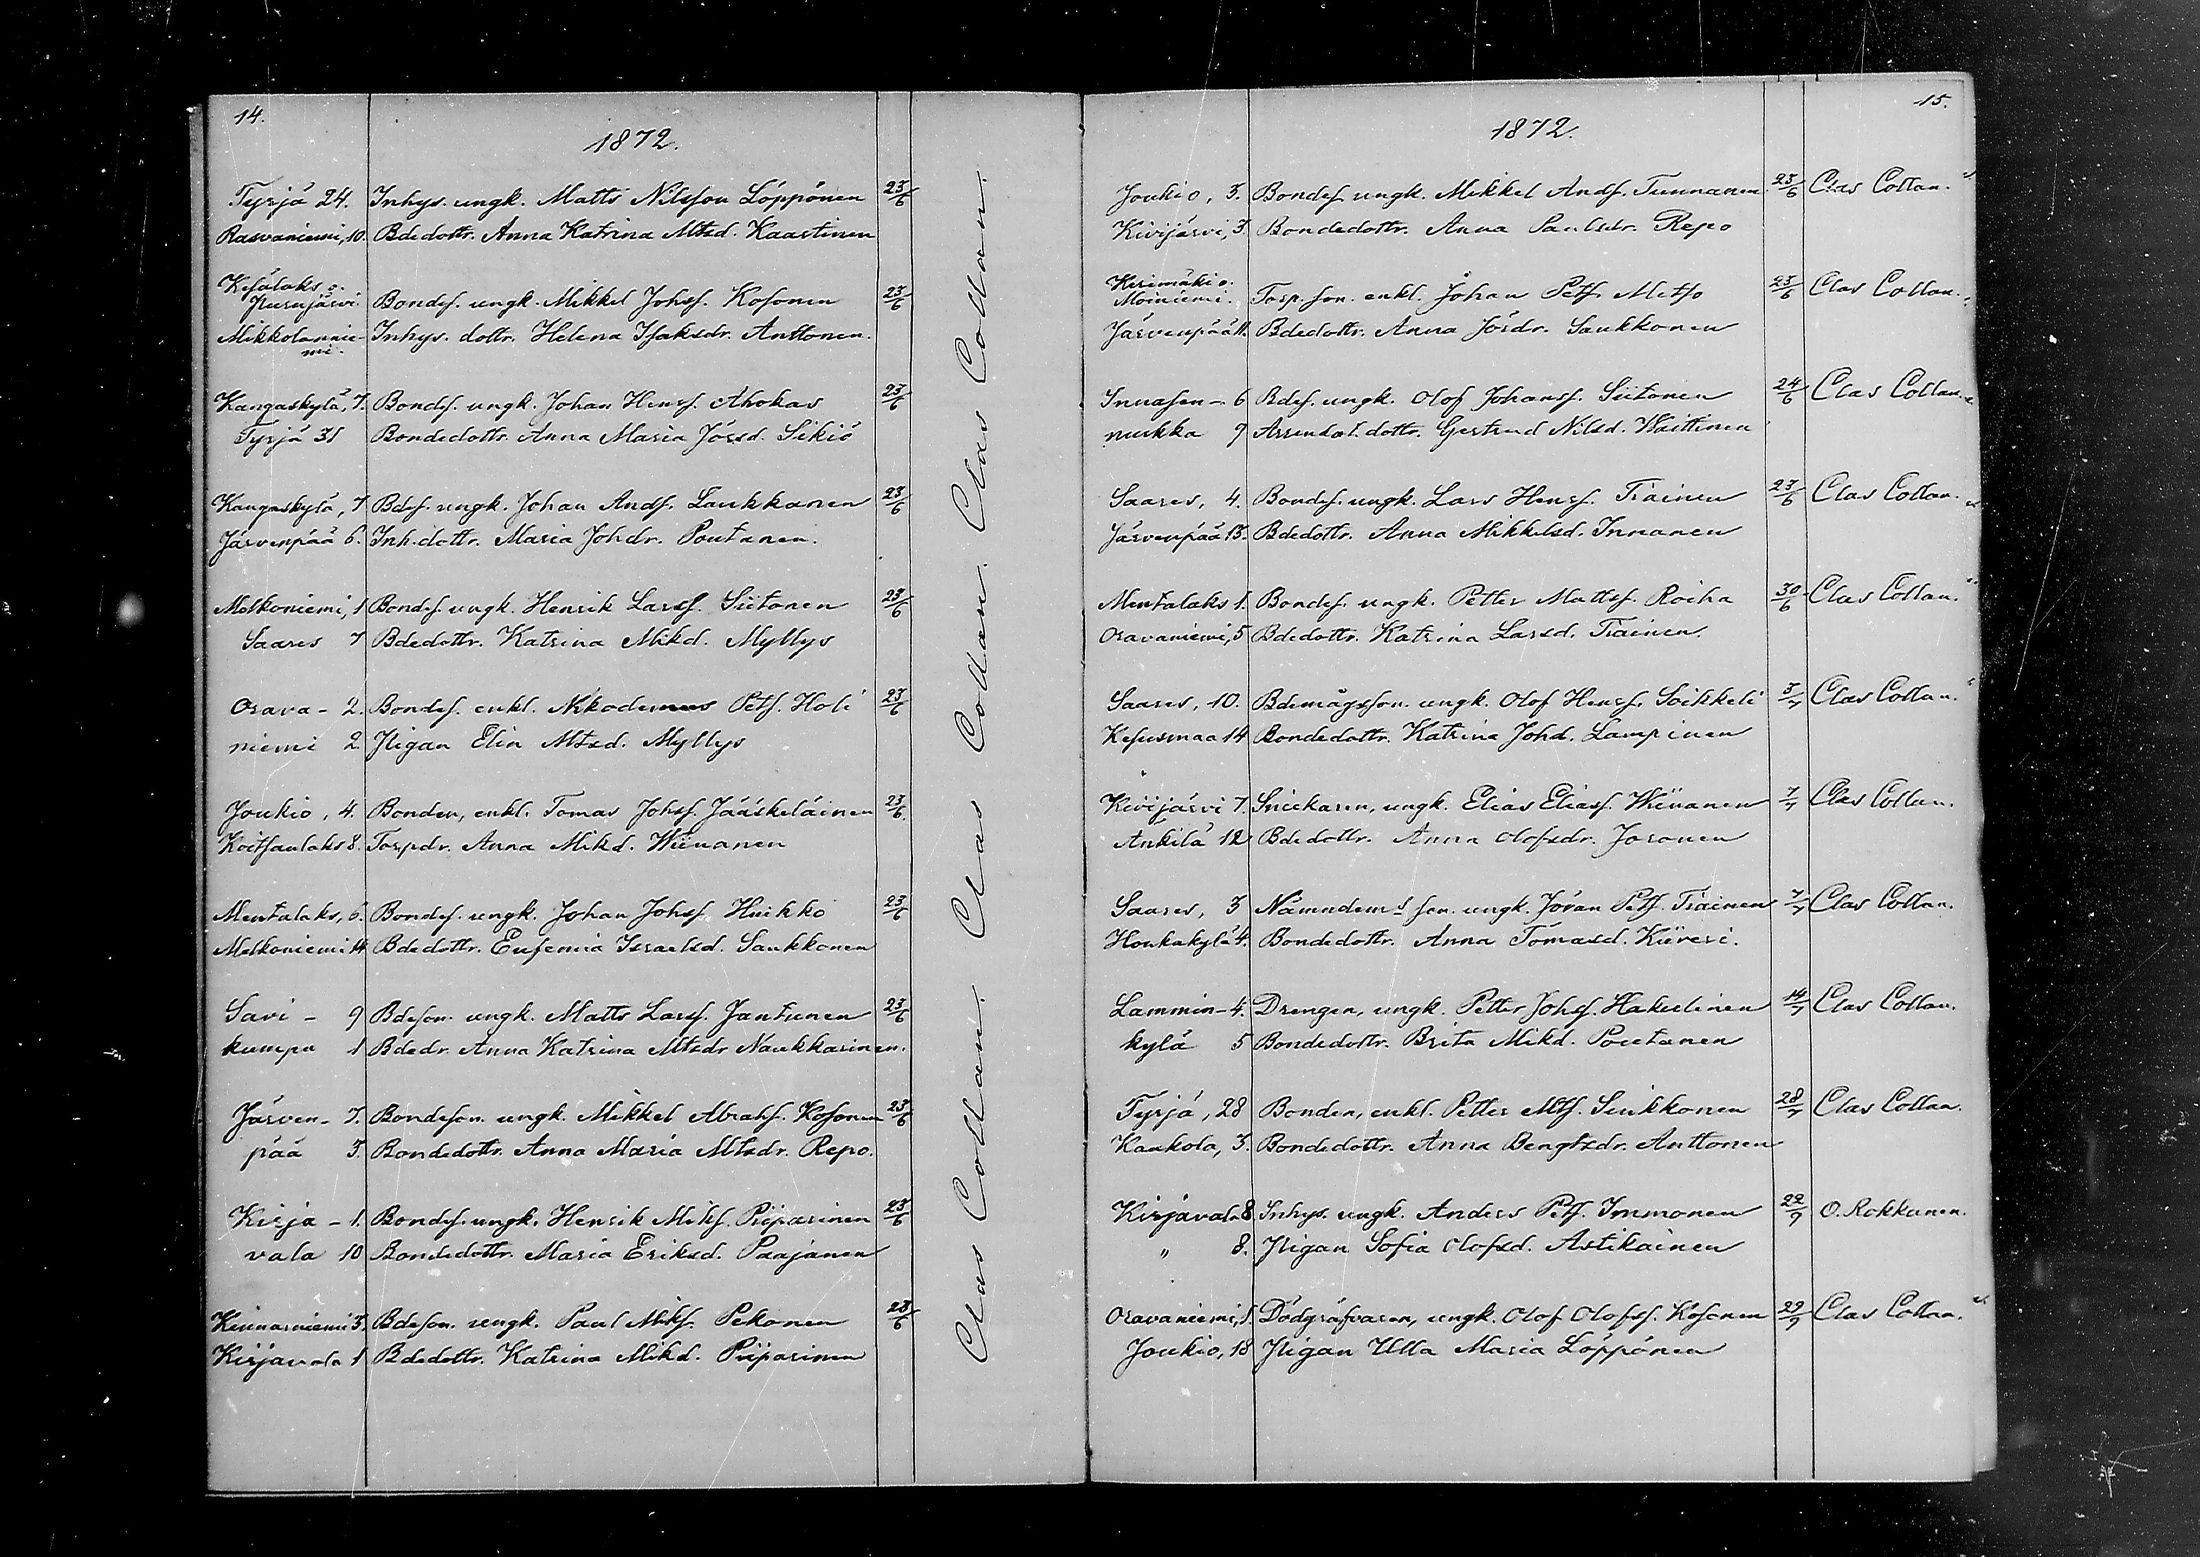 14.
1872.
Tyrjä 24. Inhys. ungk. Matts Nilsson Löppönen 23/6
Rasvaniemi, 10. Bdedottr. Anna Katrina Mtsd. Kaartinen
Kesälaks o.
Purujärvi. Bondes. ungk. Mikkel Johss. Kosonen 23/6
Mikkolannie- Inhys. dottr. Helena Isaksdr. Anttonen.
mi.
Kangaskylä, 7. Bondes. ungk. Johan Henrss. Ahokas 23/6
Tyrjä 31 Bondedottr. Anna Maria Jörsd. Sikiö
Kangaskylä, 7 Bdes. ungk. Johan Ands. Laukkanen 23/6
Järvenpää 6. Inh. dottr. Maria Johdr. Poutanen.
Melkoniemi, 1 Bondes. ungk. Henrik Larss. Siitonen 23/6
Saares 7 Bdedottr. Katrina Mikd. Myllys
Orava- 2. Bondes. enkl. Nikodemus Pets. Holi 23/6
niemi 2 Pigan Elin Mtsd. Myllys
Joukio, 4. Bonden, enkl. Tomas Johss. Jääskeläinen 23/6
Koitsanlaks 8. Torpdr. Anna Mikd. Wiinanen
Mentalaks, 6. Bondes. ungk. Johan Johss. Huikko 23/6
Melkoniemi 14 Bdedottr. Eufemia Israelsd. Saukkonen
Savi- 9 Bdeson. ungk. Matts Larss. Jantunen 23/6
kumpu 1 Bdedr. Anna Katrina Mtsdr Naukkarinen.
Järven- 7. Bondeson. ungk. Mikkel Abrahs. Kosonen 23/6
pää 3. Bondedottr. Anna Maria Mtsdr. Repo.
Kirja- 1. Bondes. ungk. Henrik Miks. Piiparinen 23/6
vala 10 Bondedottr. Maria Eriksd. Paajanen
Kinnarniemi 3. Bdeson. ungk. Paul Miks. Pekonen 23/6
Kirjavala 1 Bdedottr. Katrina Mikd. Piiparinen
Clas Collan. Clas Collan. Clas Collan.
15.
1872.
Joukio, 3. Bondes. ungk. Mikkel Ands. Tunnanen 23/6 Clas Collan.
Kivijärvi, 3. Bondedottr. Anna Paulsdr. Repo
Kerimäki o.
Moiniemi. Torp. son. enkl. Johan Pets. Metso 23/6 Clas Collan.
Järvenpää 11. Bdedottr. Anna Jördr. Saukkonen
Innasen- 6 Bdes. ungk. Olof Johanss. Siitonen 24/6 Clas Collan.
nurkka 9 Arrendat. dottr. Gertrud Nilsd. Waittinen
Saares, 4. Bondes. ungk. Lars Henrss. Tiainen 23/6 Clas Collan.
Järvenpää 13. Bdedottr. Anna Mikkelsd. Innanen
Mentalaks 1. Bondes. ungk. Petter Mattss. Roiha 30/6 Clas Collan.
Oravaniemi, 5 Bdedottr. Katrina Larsd. Tiainen.
Saares, 10. Bdemågsson. ungk. Olof Henrss. Soikkeli 3/7 Clas Collan.
Kesusmaa 14 Bondedottr. Katrina Johd. Lampinen
Kivijärvi 7. Snickaren, ungk. Elias Eliass. Wiinanen 7/7 Clas Collan.
Ankila 12 Bdedottr. Anna Olofsdr. Joronen
Saares, 3 Nämndems son. ungk. Jöran Pets. Tiainen 7/7 Clas Collan.
Honkakylä 4. Bondedottr. Anna Tomasd. Kiiveri.
Lammin- 4. Drengen, ungk. Petter Johss. Hakulinen 14/7 Clas Collan.
kylä 5 Bondedottr. Brita Mikd. Poutanen
Tyrjä, 28 Bonden, enkl. Petter Mts. Sinkkonen 28/7 Clas Collan.
Kaukola, 3. Bondedottr. Anna Bengtsdr. Anttonen
Kirjaval. 8 Inhys. ungk. Anders Pets. Immonen 22/9 O. Rokkanen.
" 8. Pigan Sofia Olofsd. Astikainen
Oravaniemi, 1. Dödgräfvaren, ungk. Olof Olofss. Kosonen 29/9 Clas Collan.
Joukio, 18 Pigan Ulla Maria Löppönen